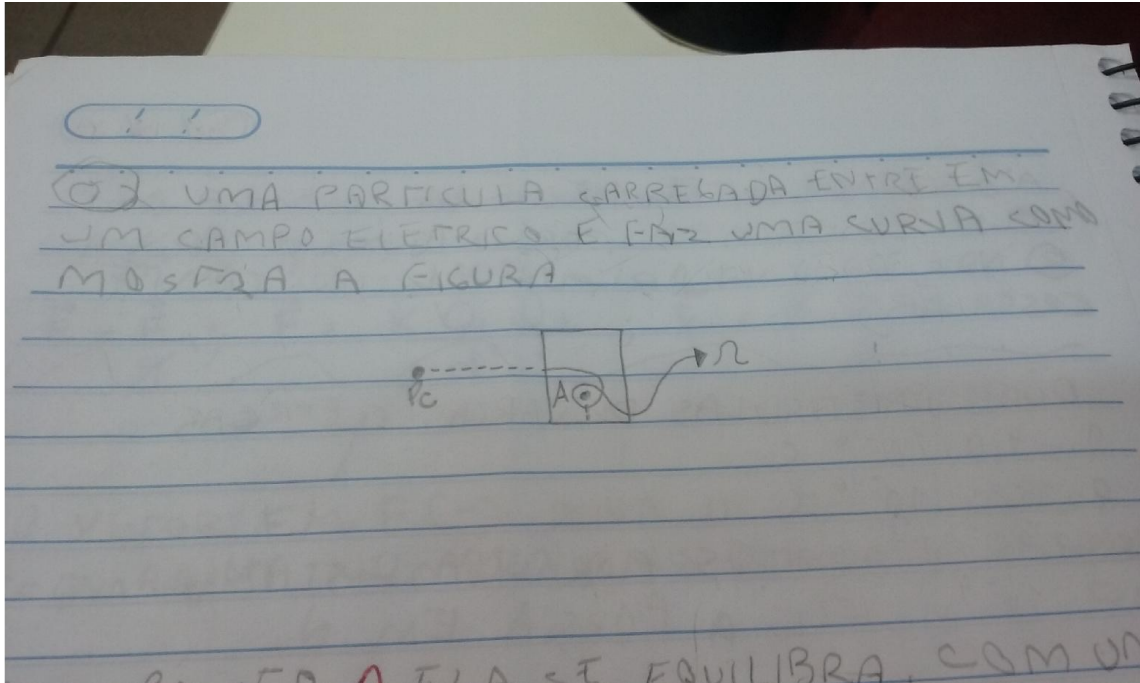 / /
03 UMA PARTICULA CARREGADA ENTRE EM
UM CAMPO ELETRICO E FAZ UMA CURVA COMO
MOSTRA A FIGURA
PC A Ω
EQUILIBRA, COM UM